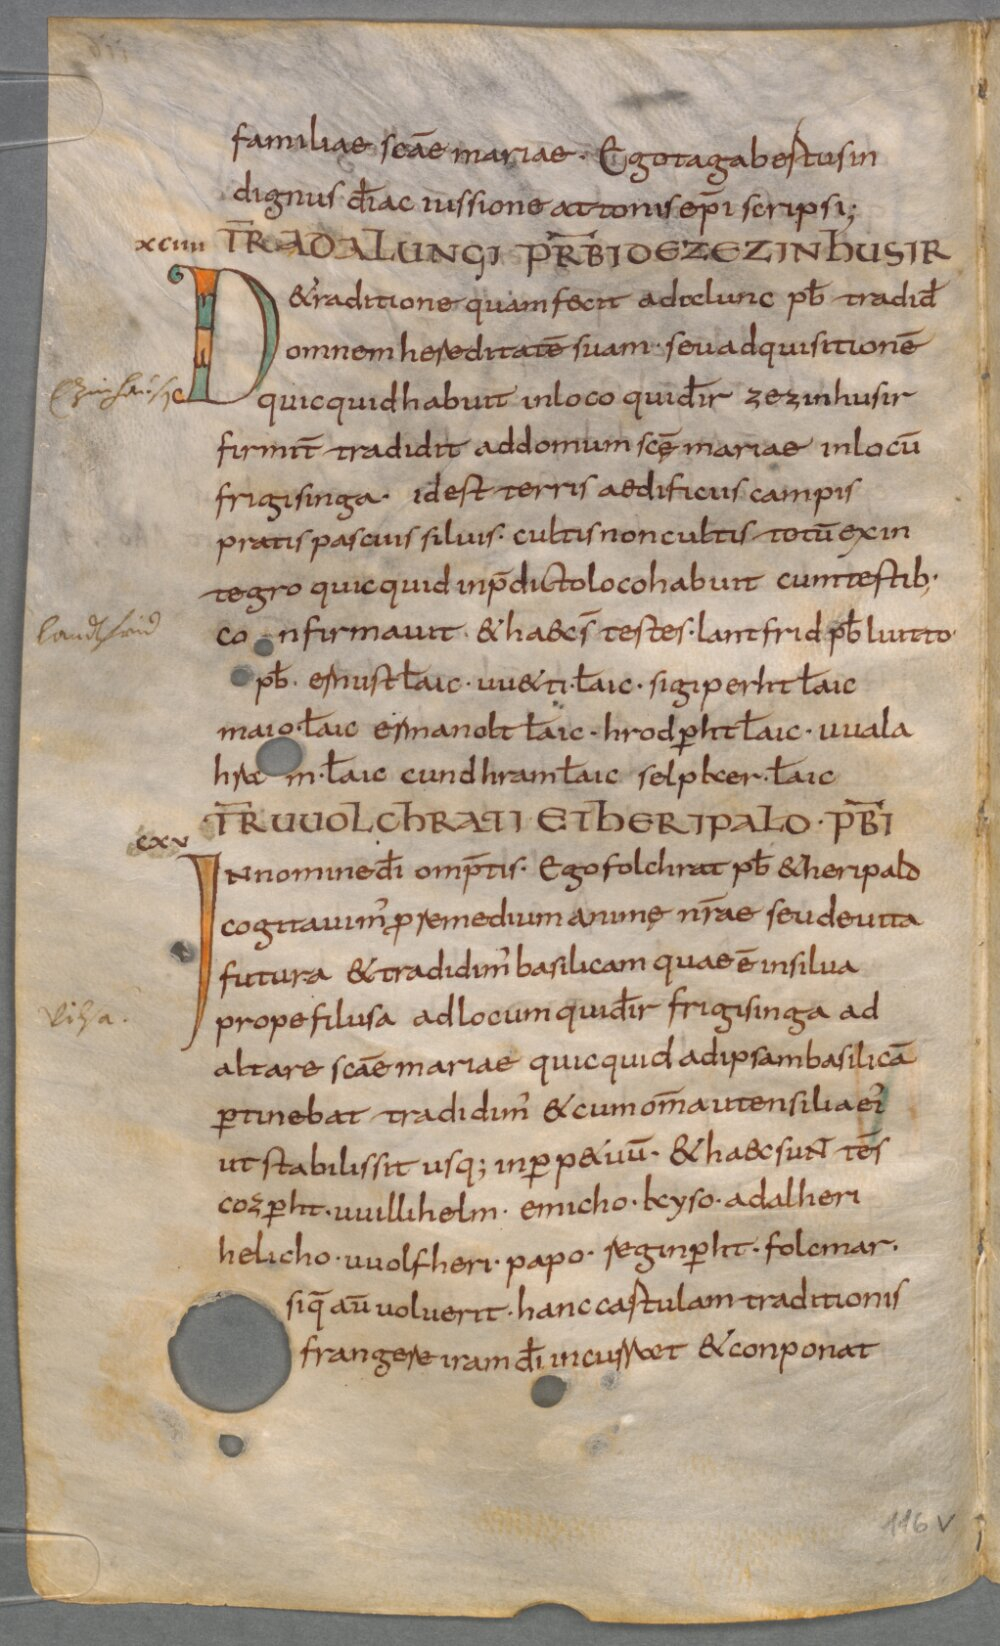 familiae scāe mariae. Ego tagabertus in
dignus diac̄ iussione attonis ep̄i scripsi;
xcuiii TR̄ ADALUNGI PRB̄I DE ZEZINHUSIR
D&raditione quam fecit adalunc pb̄ tradid̄
omnem hereditatē suam. seu adquisitionē
Ezinhaus
quicquid habuit in loco qui dr̄ zezinhusir
firmit̄ tradidit ad domum scę̄ mariae in locū
frigisinga. id est terris aedificiis campis
pratis pascuis siluis. cultis non cultis totū ex in
tegro quicquid in p̄dicto loco habuit cum testib;
Landtfrid
confirmauit. & haec s̄ testes. lantfrid pb̄ liutto
pb̄. ernust laic̄. uu&ti. laic̄. sigiperht laic̄
maio. laic̄ ermanolt laic̄. hrodꝑht laic̄. uuala
hram. laic̄ cundhram laic̄ selpker. laic̄
cxv TR̄ UUOLCHRATI ET HERIPALD. PRB̄I
IN nomine dī omp̄tis. Ego folchrat pb̄ & heripald
cogitauim' ꝓ remedium animę nr̄ae seu de uita
futura & tradidim' basilicam quae ē in silua
Vilsa.
prope filusa ad locum qui dr̄ frigisinga ad
altare scāe mariae quicquid ad ipsam basilicā
ꝑtinebat tradidim' & cum om̄a utensilia ei'
ut stabilis sit usq; in ꝑp&uū. & haec sunt tes̄
cozꝑht. uuillihelm. emicho. kyso. adalheri
helicho. uuolfheri. papo. reginꝑht. folcmar.
siq̄ aū uoluerit. hanc cartulam traditionis
frangere iram dī incurrat & conponat
116 v